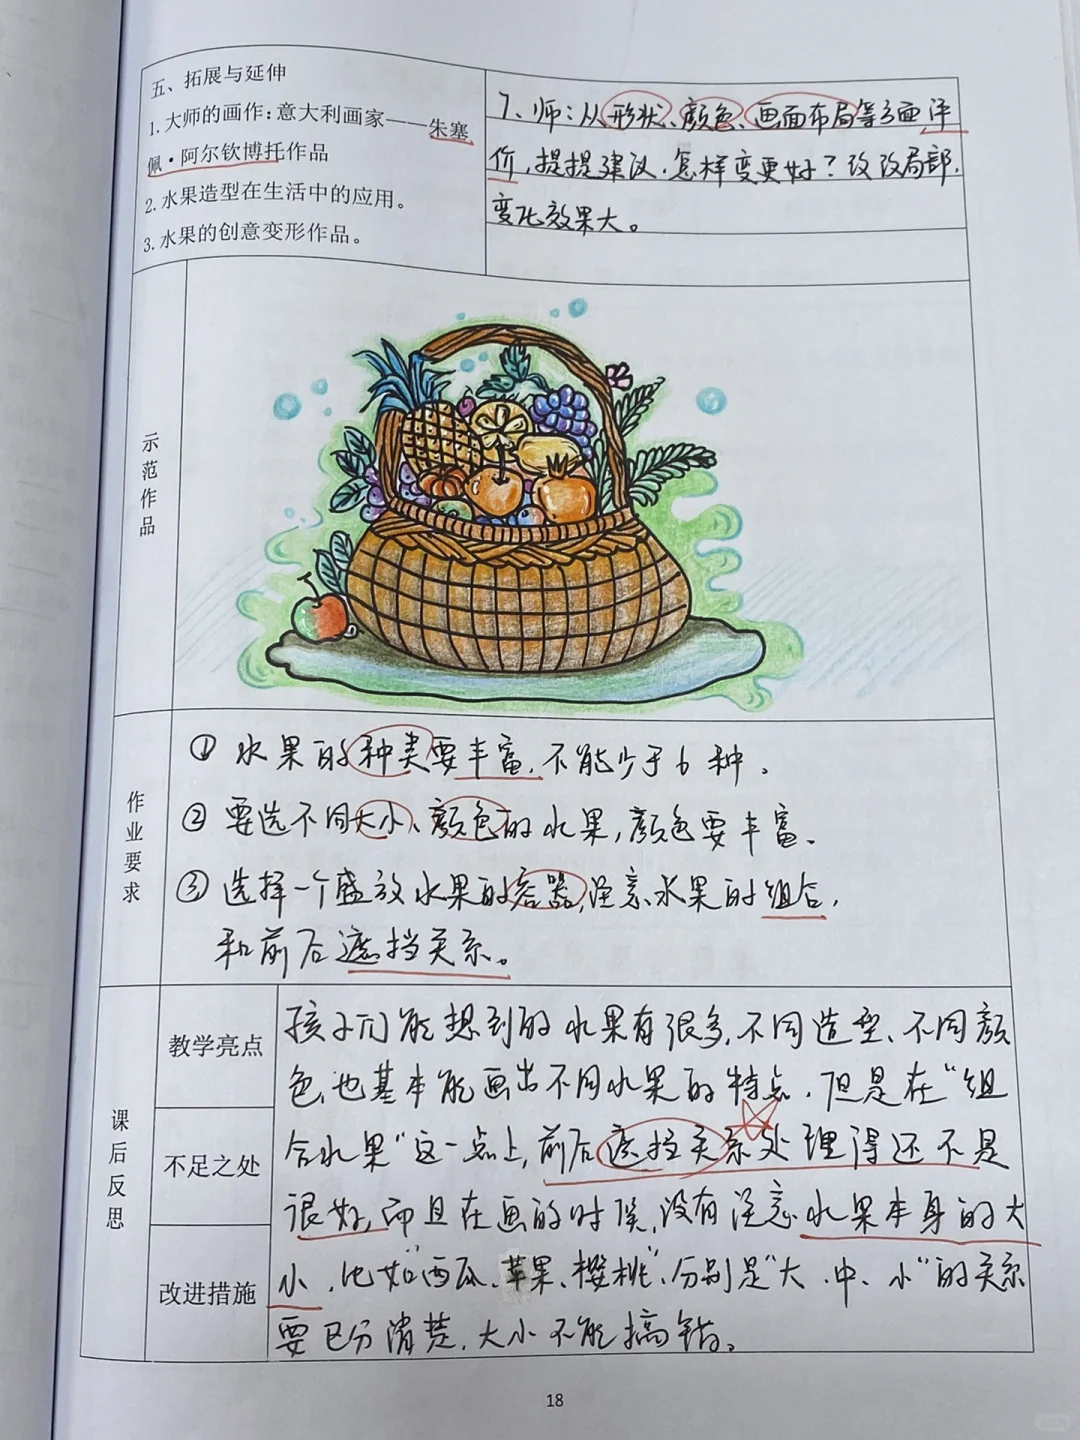 五、拓展与延伸
1.大师的画作：意大利画家——朱塞
佩·阿尔钦博托作品
2.水果造型在生活中的应用。
3.水果的创意变形作品。
7、师：从形状、颜色、画面布局等方面评
价，提提建议，怎样变更好？改改局部，
变化效果大。
示范作品
作业要求
① 水果的种类要丰富，不能少于6种。
② 要选不同大小、颜色的水果，颜色要丰富。
③ 选择一个盛放水果的容器，注意水果的组合，
和前后遮挡关系。
课后反思
教学亮点
不足之处
改进措施
孩子们能想到的水果有很多，不同造型、不同颜
色，也基本能画出不同水果的特点，但是在“组
合水果”这一点上，前后遮挡关系处理得还不是
很好，而且在画的时候，没有注意水果本身的大
小，比如“西瓜、苹果、樱桃”，分别是“大、中、小”的关系
要区分清楚，大小不能搞错。
18